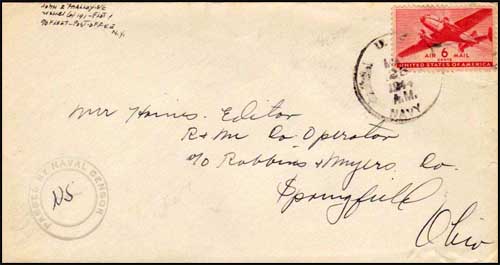 JOHN
FLEET-POST-OFFICE
N.Y.
U.S.
1944
A.M.
NAVY
6
CENTS
AIR MAIL
UNITED STATES OF AMERICA
Mr Haines. Editor
R+M Co Operator
c/o Robbins + Myers Co.
Springfield
Ohio
PASSED BY NAVAL CENSOR
NS